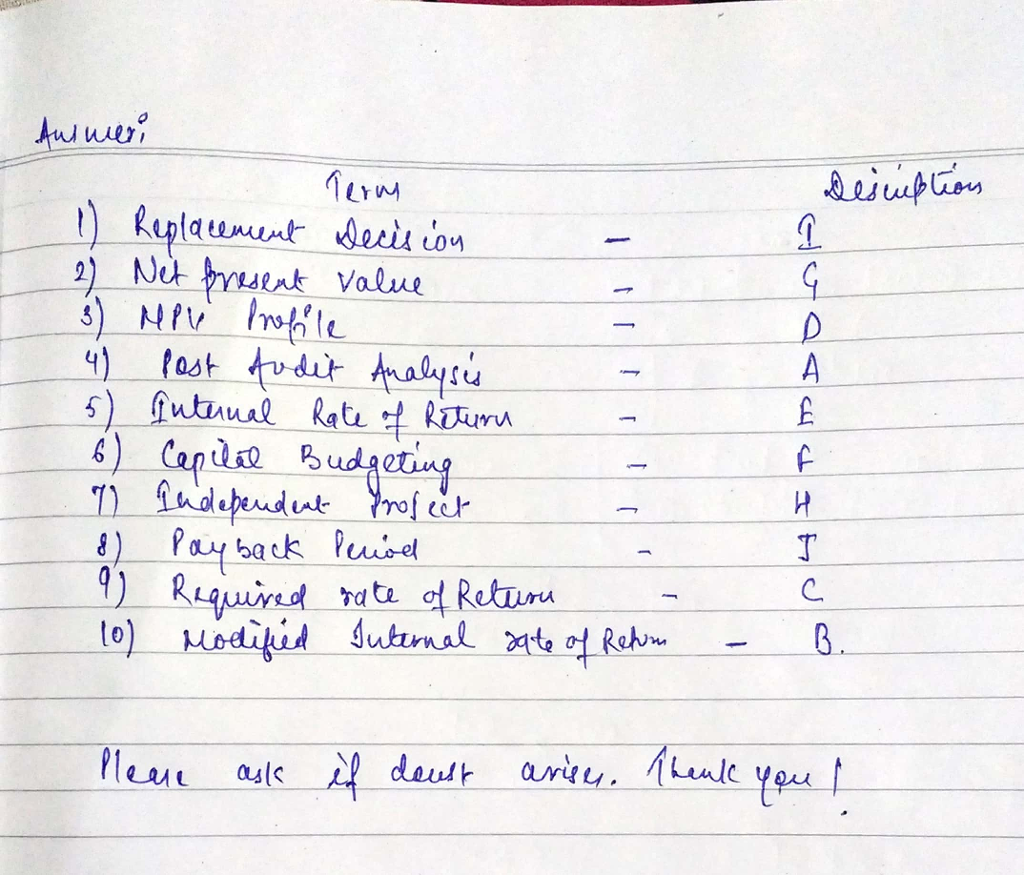 Answer:
Term Description
1) Replacement Decision – I
2) Net present value – G
3) NPV Profile – D
4) Post Audit Analysis – A
5) Internal Rate of Return – E
6) Capital Budgeting – F
7) Independent Project – H
8) Payback Period – J
9) Required rate of Return – C
10) Modified Internal rate of Return – B.
Please ask if doubt arises. Thank you!